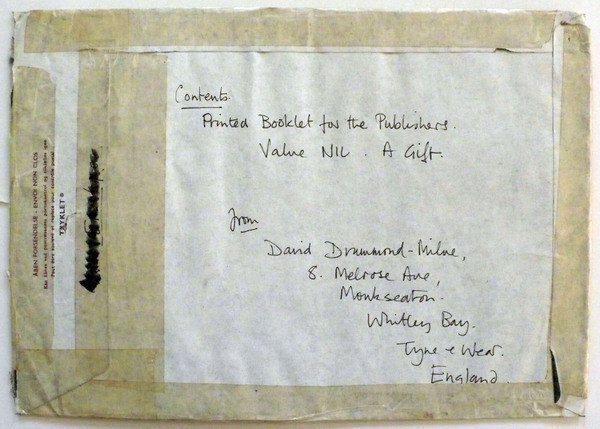 Contents.
Printed Booklet for the Publishers.
Value NIL. A Gift.
from
David Drummond-Milne,
8. Melrose Ave,
Monkseaton.
Whitley Bay.
Tyne & Wear.
England.
ÅBEN FORSENDELSE - ENVOI NON CLOS
TRYKLET®